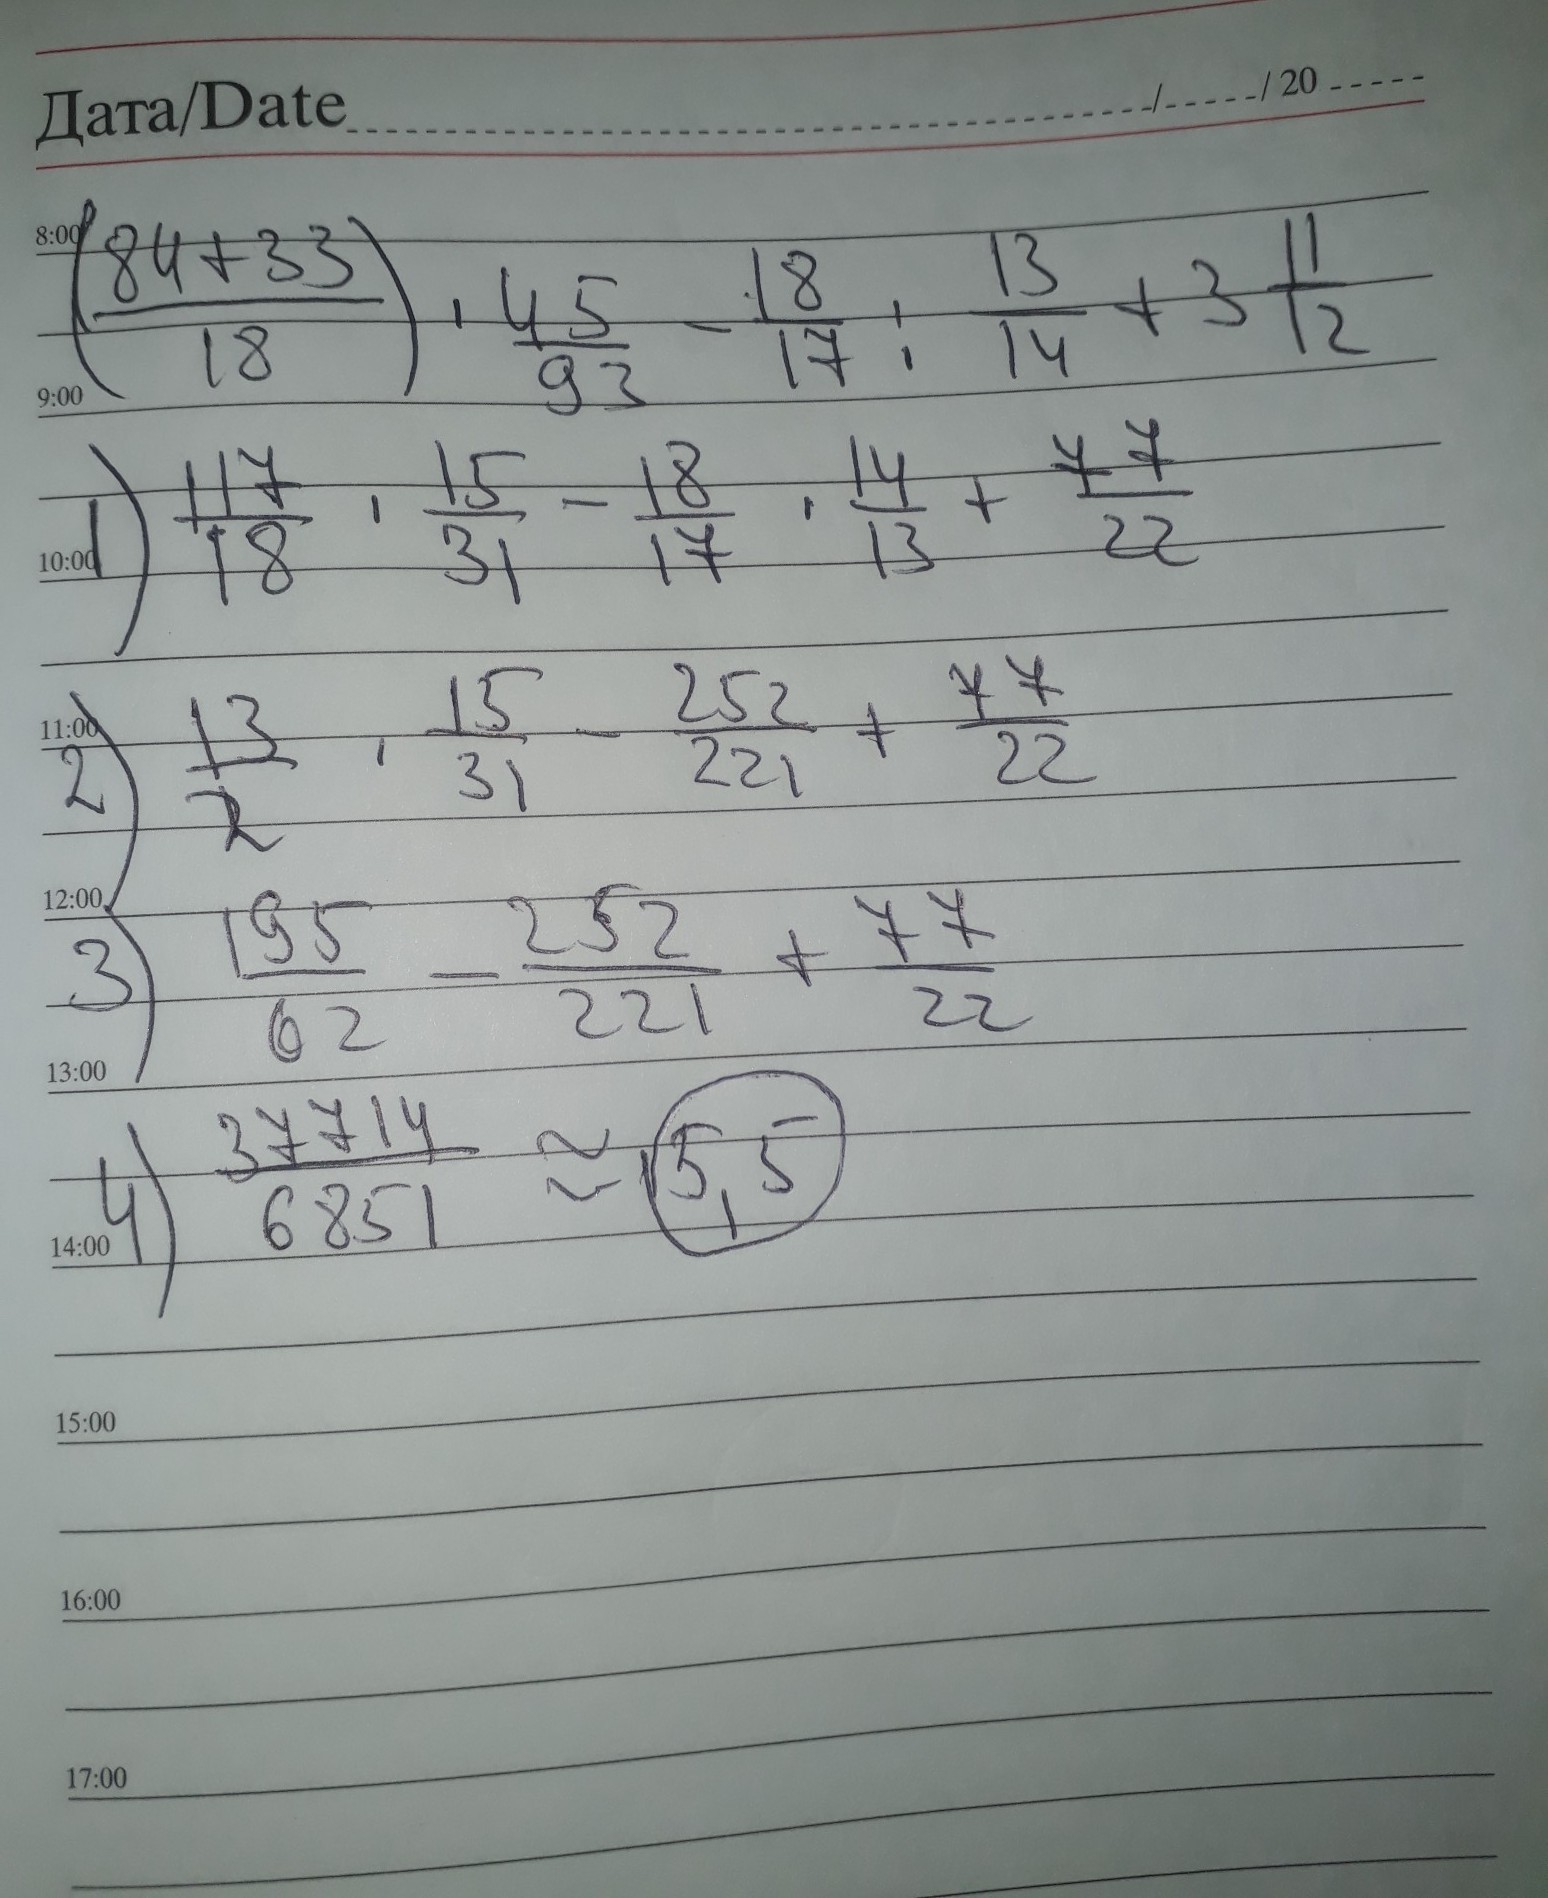 Дата/Date / / 20
8:00
(84+33)/18 · 45/93 - 18/17 : 13/14 + 3 11/12
9:00
1) 117/18 · 15/31 - 18/17 · 14/13 + 77/22
10:00
11:00
2) 13/2 · 15/31 - 252/221 + 77/22
12:00
3) 195/62 - 252/221 + 77/22
13:00
4) 37714/6851 ≈ 5,5
14:00
15:00
16:00
17:00